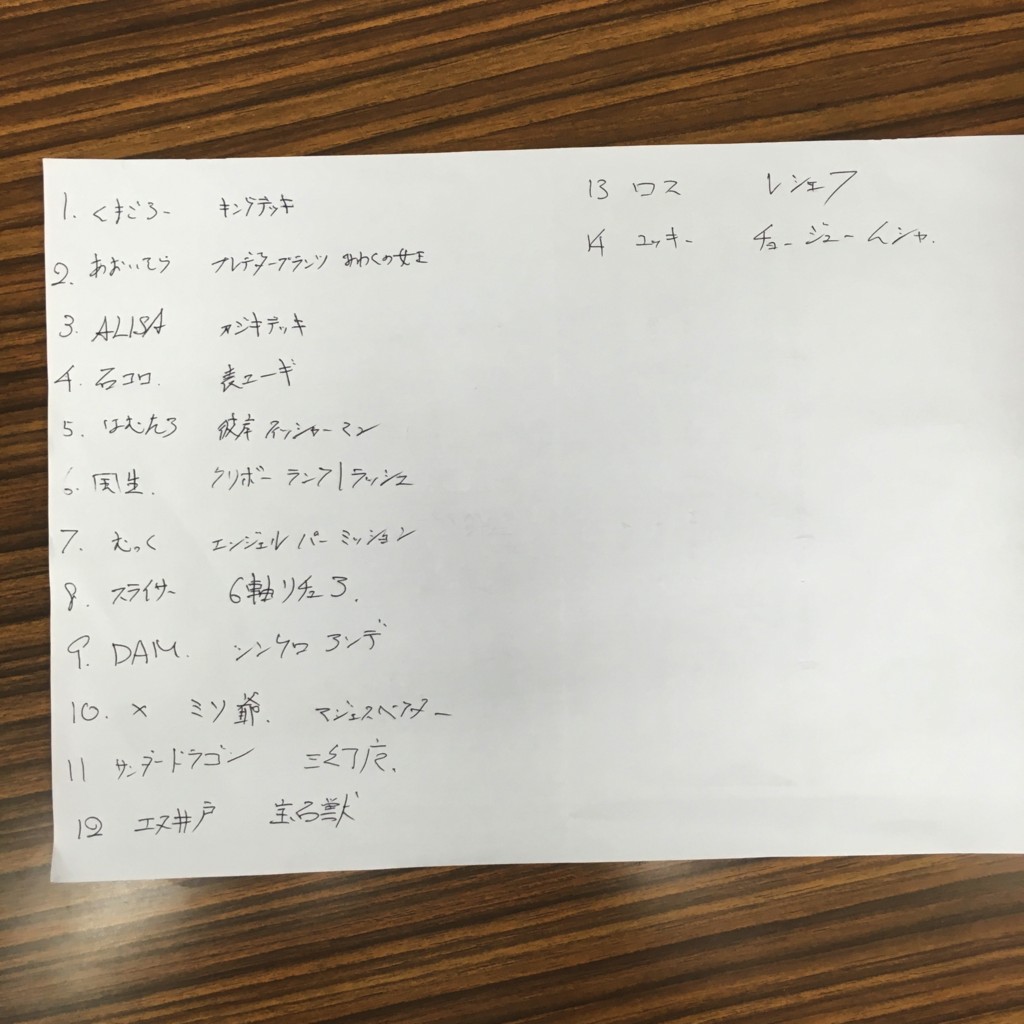 1. くまごろー キングデッキ
2. あおいてう プレデタープランツ みわくの女王
3. ALISA カジキデッキ
4. 石コロ. 表ユーギ
5. はむたろ 彼岸 フィッシャーマン
6. 国生. クリボー ランク1ラッシュ
7. むっく エンジェル パーミッション
8. スライサー 6軸リチュア.
9. DAM. シンクロ アンデ
10. × ミソ爺. マジェスペクター
11 サンダードラゴン 三幻魔.
12 エヌ井戸 宝石獣
13 ロス レシェフ
14 ユッキー チョージュームシャ.